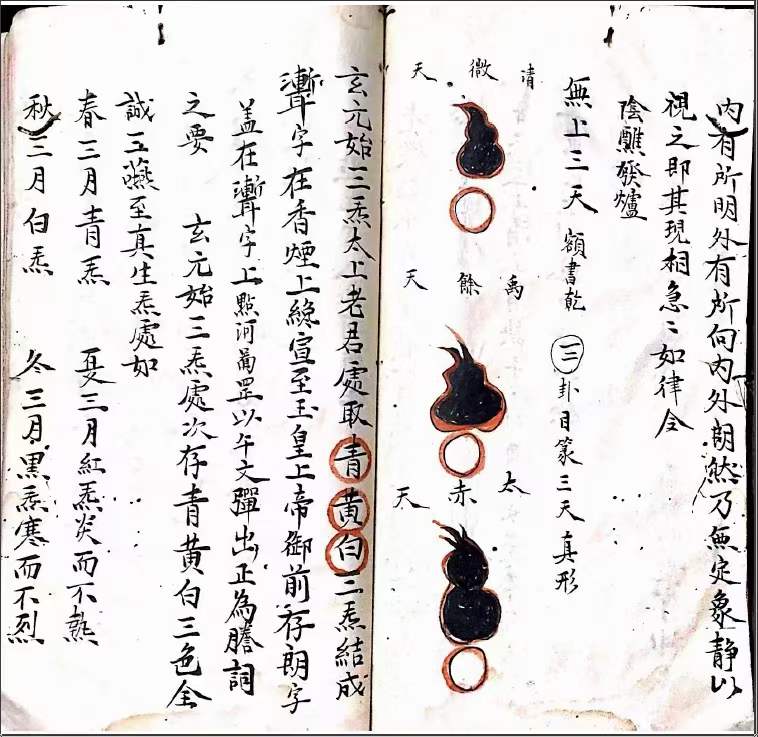 内有所明外有所向内外朗然乃無定象静以
視之即其現相急〻如律令
陰醮發爐
無上三天 額書乾 三卦目篆三天真形
清微天
禹餘天
太赤天
玄元始三炁太上老君處取青黃白三炁結成
聻字在香煙上宣至玉皇上帝御前存朗字
盖在聻字上點河罡以午文彈出正為謄詞
之要 玄元始三炁處次存青黃白三色全
誠五至真生炁處如
春三月青炁 夏三月紅炁炎而不熱
秋三月白炁 冬三月黑炁寒而不烈